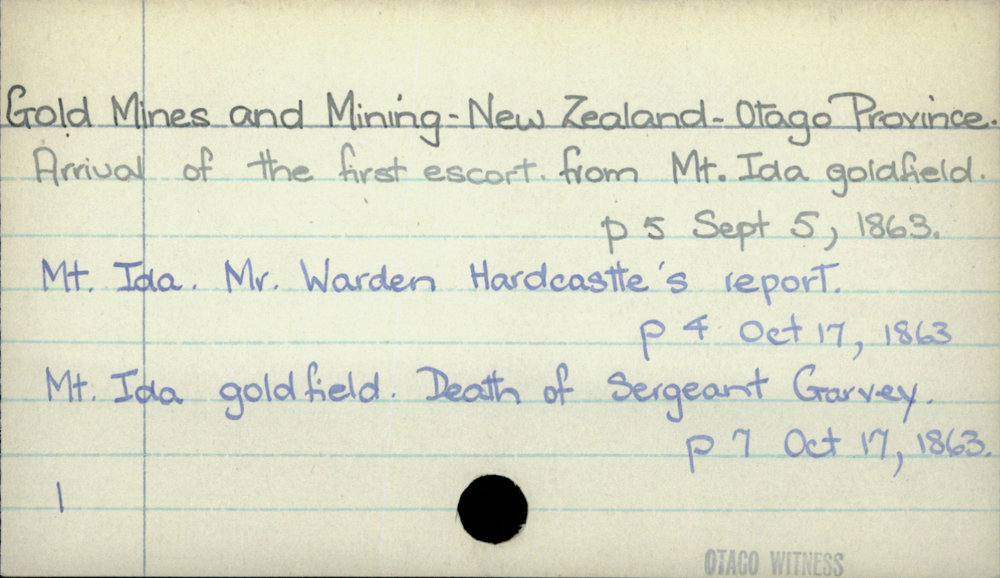 Gold Mines and Mining - New Zealand - Otago Province.
Arrival of the first escort. from Mt. Ida goldfield.
p 5 Sept 5, 1863.
Mt. Ida. Mr. Warden Hardcastle's report.
p 4 Oct 17, 1863
Mt. Ida goldfield. Death of Sergeant Garvey.
p 7 Oct 17, 1863.
1
OTAGO WITNESS